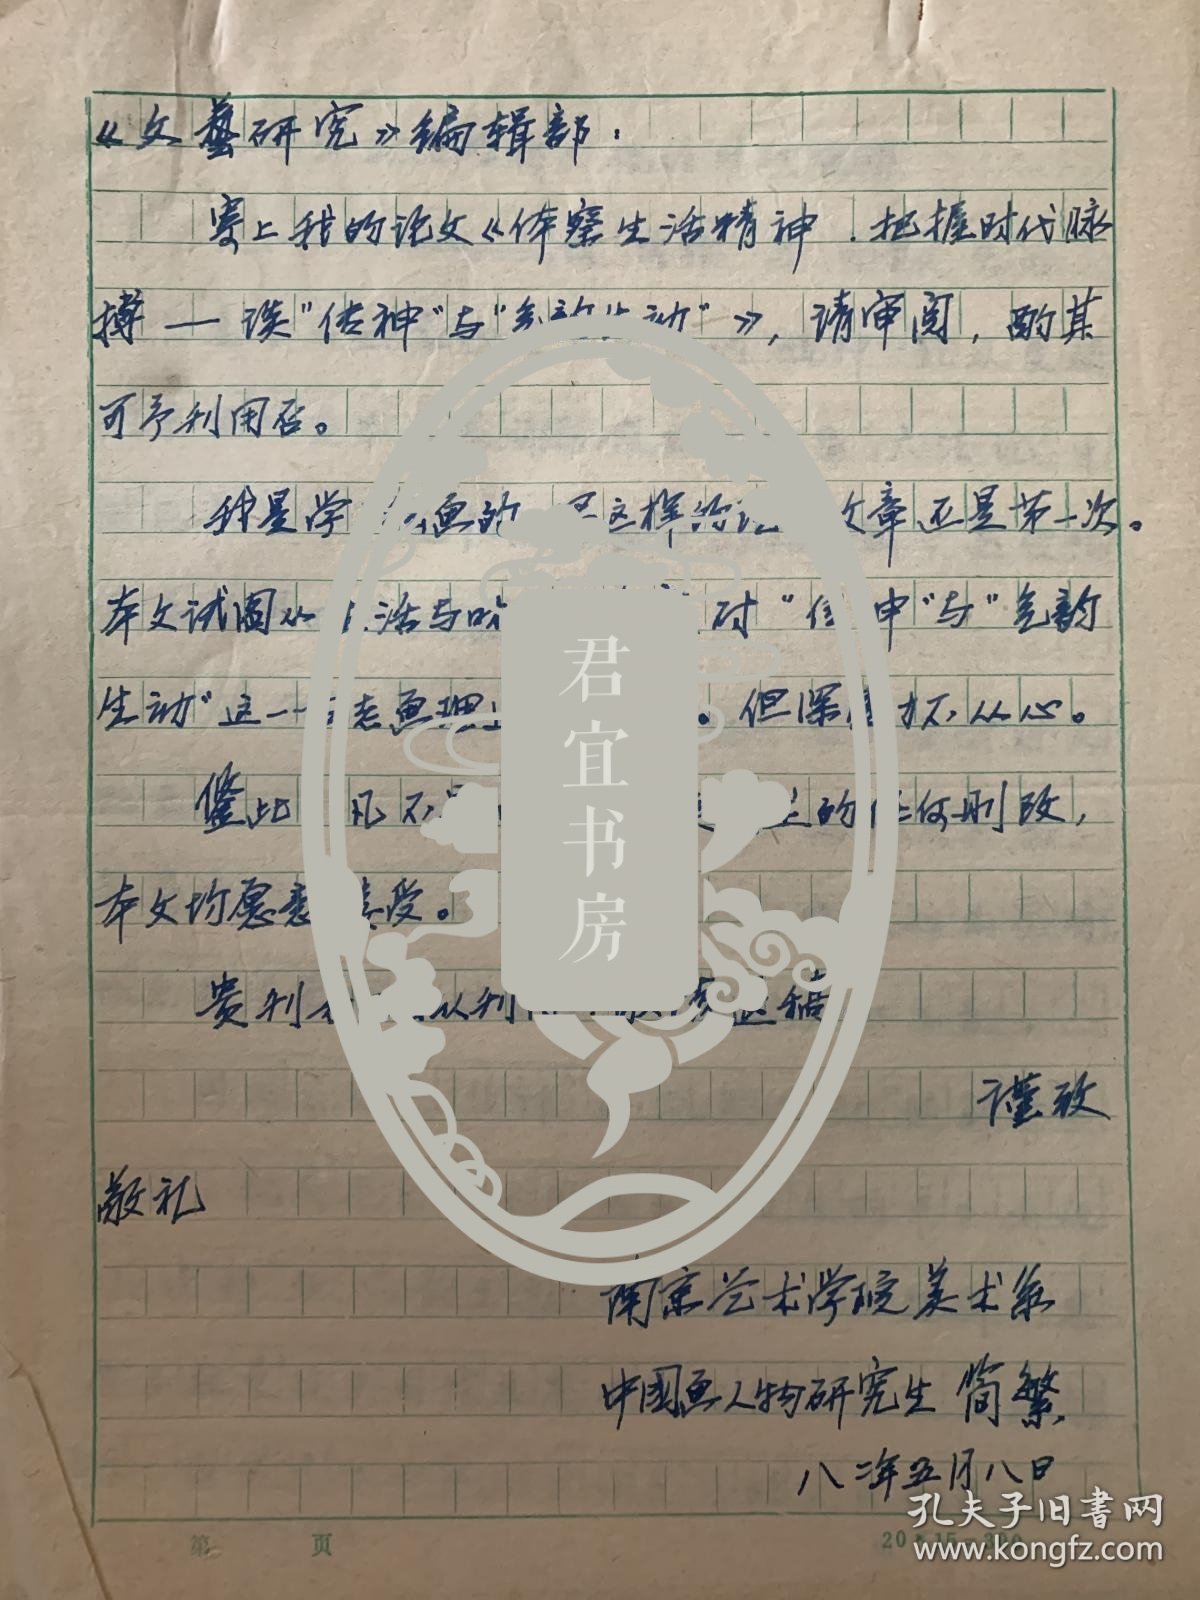 《文藝研究》编辑部：
寄上我的论文《体察生活精神．把握时代脉
搏——谈“传神”与“气韵生动”》，请审阅，酌其
可予利用否。
我是学 画的 这样的 文章还是第一次。
本文试图从 活与 对“传神”与“气韵
生动”这一 画理 。但深 力不从心。
鉴此 凡不 的任何删改，
本文均愿意接受。
贵刊 从利 退稿
谨致
敬礼
南京艺术学院美术系
中国画人物研究生 简繁
八二年五月八日
第 页
20×15=300
君宜书房
孔夫子旧书网
www.kongfz.com